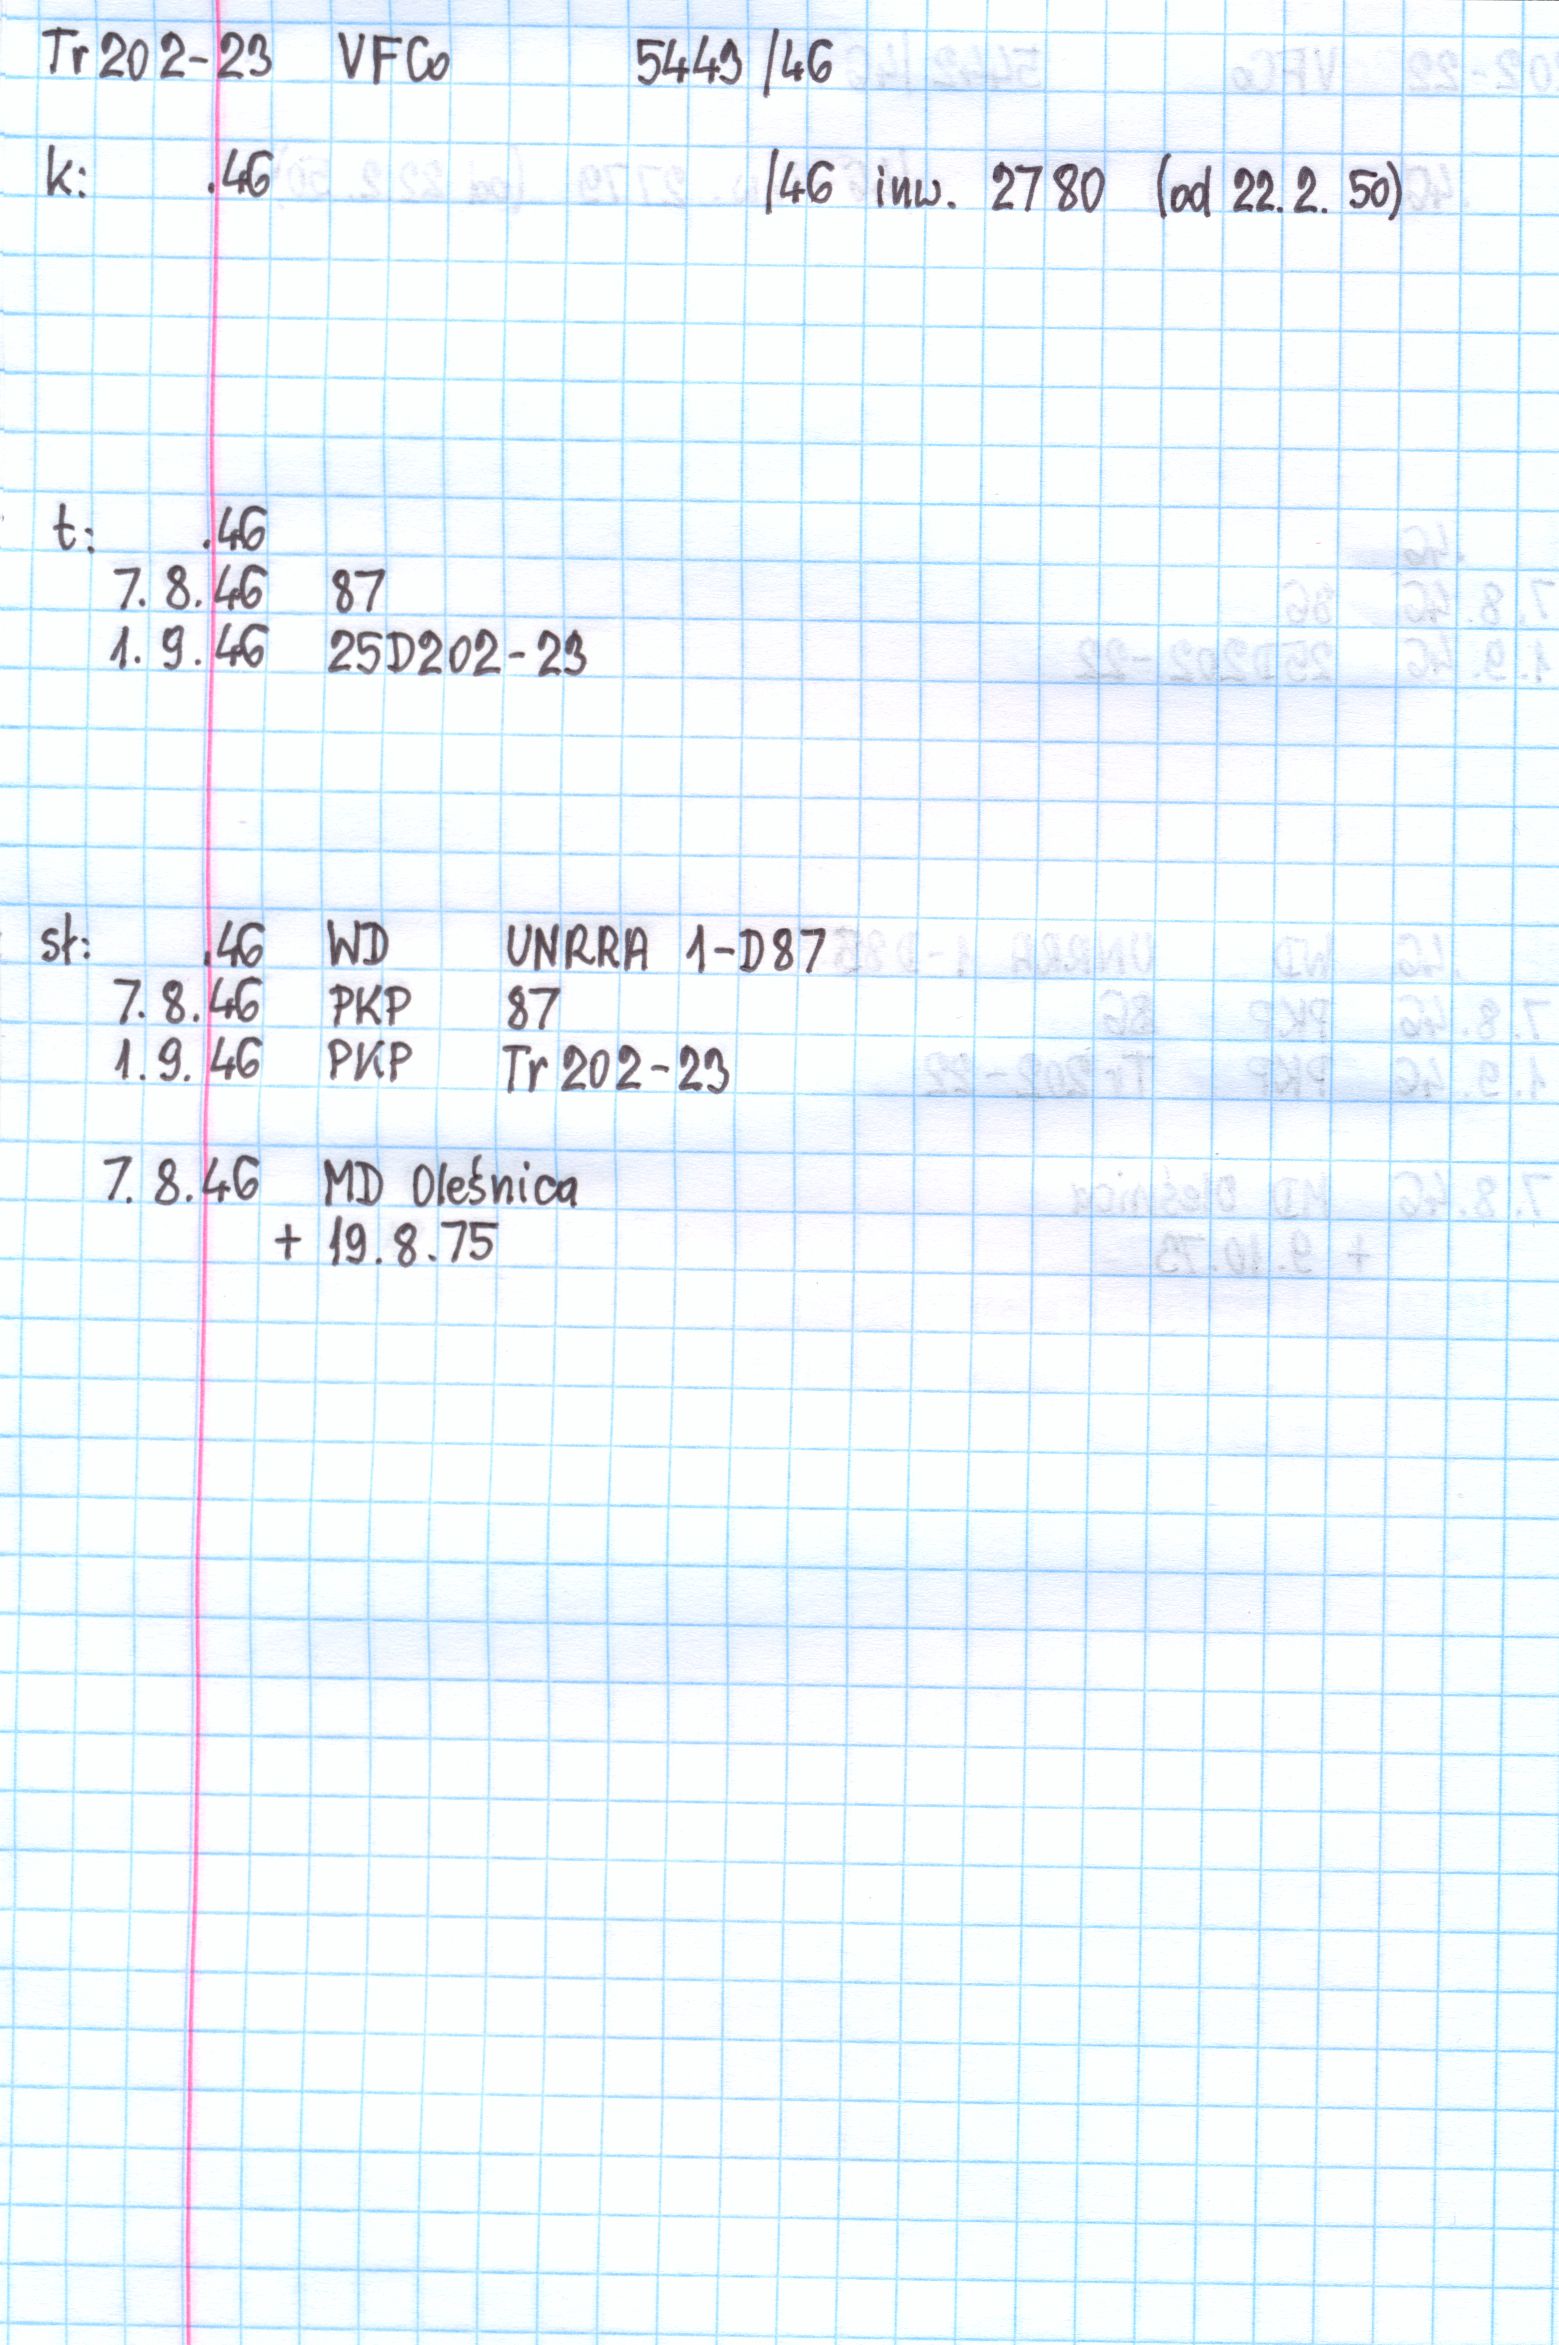 Tr 202-23 VFCo 5443 /46
k: .46 /46 inw. 2780 (od 22.2.50)
t: .46
7.8.46 87
1.9.46 25D202-23
sł: .46 WD UNRRA 1-D87
7.8.46 PKP 87
1.9.46 PKP Tr 202-23
7.8.46 MD Oleśnica
+ 19.8.75